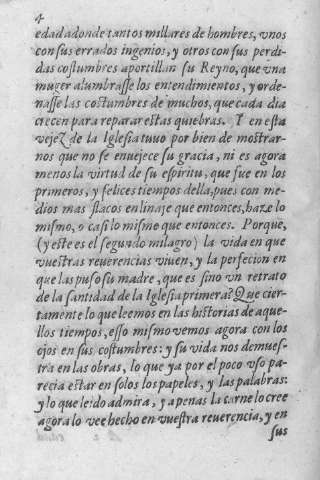 4
edad adonde tantos millares de hombres, vnos
con sus errados ingenios, y otros con sus perdi-
das costumbres aportillan su Reyno, que vna
muger alumbrasse los entendimientos, y orde-
nasse las costumbres de muchos, que cada dia
crecen para reparar estas quiebras. Y en esta
vejez de la Iglesia tuuo por bien de mostrar-
nos que no se enuejece su gracia, ni es agora
menos la virtud de su espiritu, que fue en los
primeros, y felices tiempos della, pues con me-
dios mas flacos en linaje que entonces, haze lo
mismo, o casi lo mismo que entonces. Porque,
(y este es el segundo milagro) la vida en que
vuestras reuerencias viuen, y la perfecion en
que las puso su madre, que es sino vn retrato
de la santidad de la Iglesia primera? Que cier-
tamente lo que leemos en las historias de aque-
llos tiempos, esso mismo vemos agora con los
ojos en sus costumbres: y su vida nos demues-
tra en las obras, lo que ya por el poco vso pa-
recia estar en solos los papeles, y las palabras:
y lo que leido admira, y apenas la carne lo cree
agora lo vee hecho en vuestra reuerencia, y en
sus